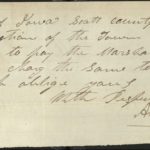 of Iowa Scott county
ction of the Town
to pay the Marshal
charg the same to
oblige yours
With Respect